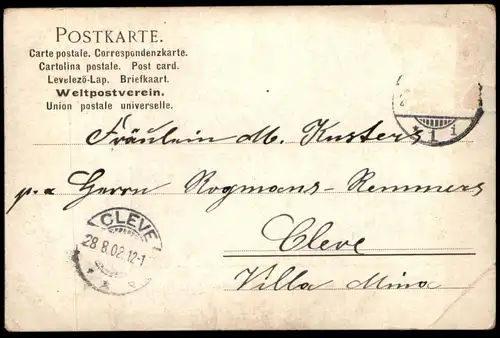 POSTKARTE.
Carte postale. Correspondenzkarte.
Cartolina postale. Post card.
Levelező-Lap. Briefkaart.
Weltpostverein.
Union postale universelle.
Fräulein M. Kusters
p. a Herrn Rogmans-Remmers
Cleve
Villa Mina
CLEVE
28.8.02.12-1
1 i